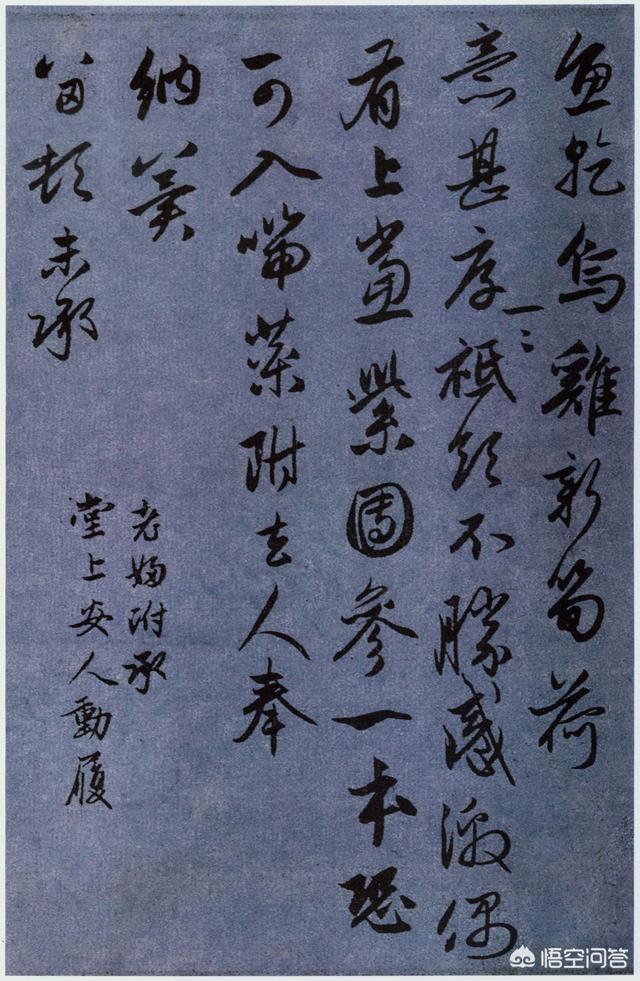 魚乾烏雞新筍荷
意甚厚一一祗領不勝感激偶
有上黨紫團參一本恐
可入喘藥附去人奉
納冀
留未承
老婦附承
堂上安人動履
悟空问答